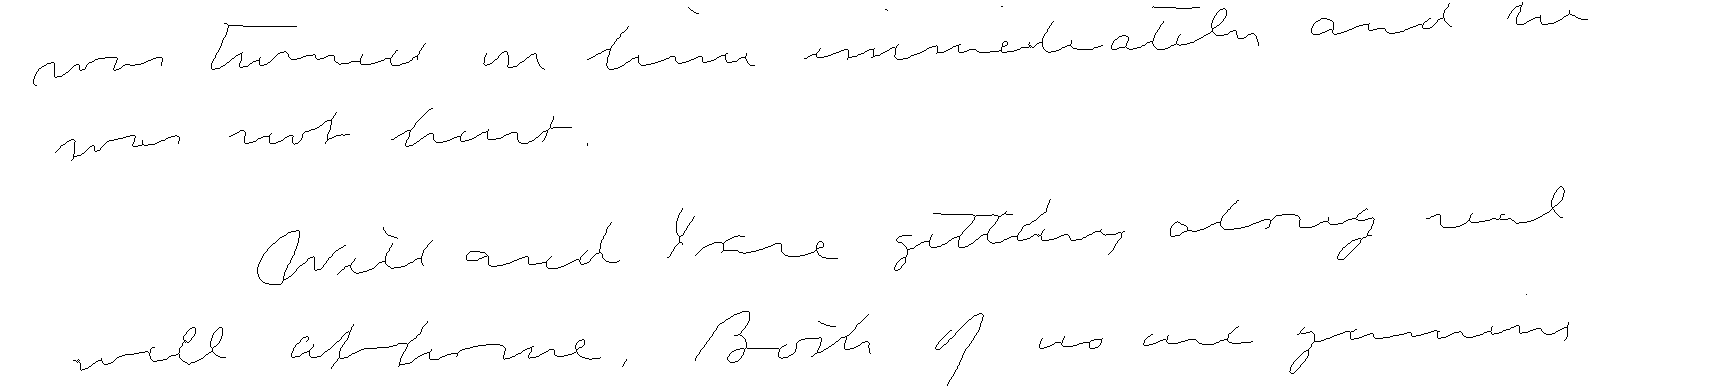 was turned in time immediately and he
was not hurt.
Will and I are getting along real
well at home. Both of us are gaining